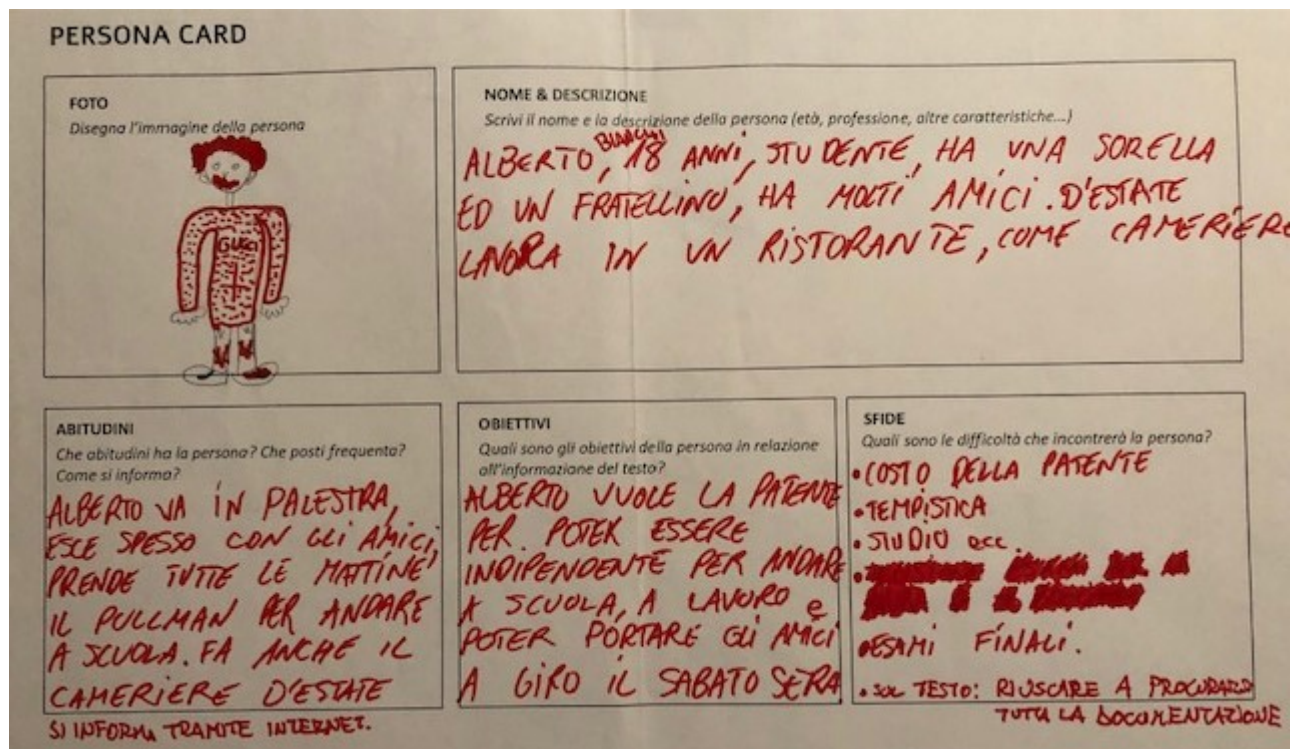 PERSONA CARD
FOTO
Disegna l'immagine della persona
GUCCI
NOME & DESCRIZIONE
Scrivi il nome e la descrizione della persona (età, professione, altre caratteristiche...)
BIANCHI
ALBERTO, 18 ANNI, STUDENTE, HA UNA SORELLA
ED UN FRATELLINO, HA MOLTI AMICI. D'ESTATE
LAVORA IN UN RISTORANTE, COME CAMERIERE
ABITUDINI
Che abitudini ha la persona? Che posti frequenta?
Come si informa?
ALBERTO VA IN PALESTRA,
ESCE SPESSO CON GLI AMICI,
PRENDE TUTTE LE MATTINE
IL PULLMAN PER ANDARE
A SCUOLA. FA ANCHE IL
CAMERIERE D'ESTATE
SI INFORMA TRAMITE INTERNET.
OBIETTIVI
Quali sono gli obiettivi della persona in relazione
all'informazione del testo?
ALBERTO VUOLE LA PATENTE
PER POTER ESSERE
INDIPENDENTE PER ANDARE
A SCUOLA, A LAVORO e
POTER PORTARE GLI AMICI
A GIRO IL SABATO SERA
SFIDE
Quali sono le difficoltà che incontrerà la persona?
• COSTO DELLA PATENTE
• TEMPISTICA
• STUDIO ecc.
• ESAMI FINALI.
• SUL TESTO: RIUSCARE A PROCURARSI
TUTTA LA DOCUMENTAZIONE